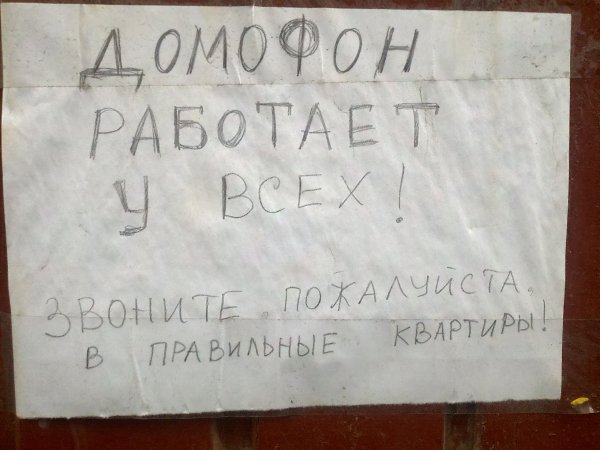 ДОМОФОН
РАБОТАЕТ
У ВСЕХ!
ЗВОНИТЕ, ПОЖАЛУЙСТА,
В ПРАВИЛЬНЫЕ КВАРТИРЫ!